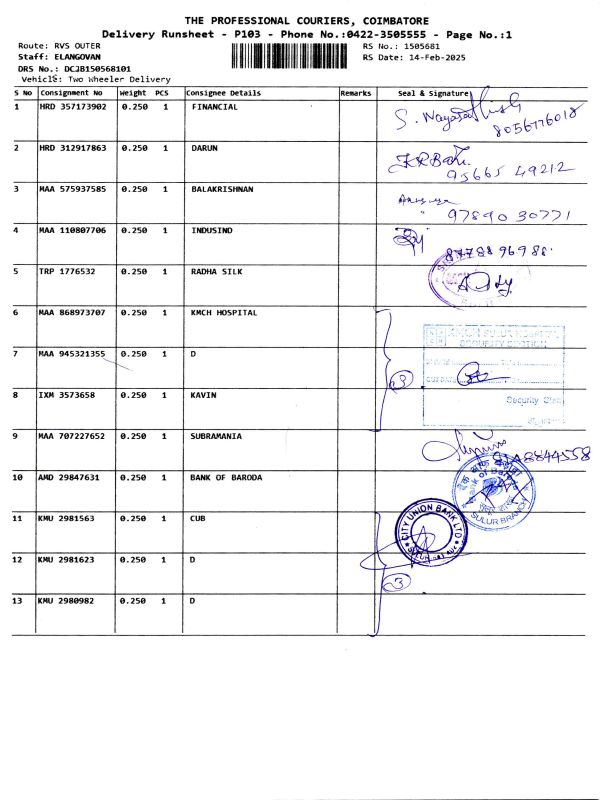 THE PROFESSIONAL COURIERS, COIMBATORE
Delivery Runsheet - P103 - Phone No.:0422-3505555 - Page No.:1
Route: RVS OUTER
RS No.: 1505681
Staff: ELANGOVAN
RS Date: 14-Feb-2025
DRS No.: DCJB150568101
Vehicle: Two Wheeler Delivery
S No Consignment No Weight PCS Consignee Details Remarks Seal & Signature
1 HRD 357173902 0.250 1 FINANCIAL
8056776018
2 HRD 312917863 0.250 1 DARUN
95665 49212
3 MAA 575937585 0.250 1 BALAKRISHNAN
97890 30771
4 MAA 110807706 0.250 1 INDUSIND
87788 96988
5 TRP 1776532 0.250 1 RADHA SILK
6 MAA 868973707 0.250 1 KMCH HOSPITAL
SECURITY SECTION
7 MAA 945321355 0.250 1 D
3
8 IXM 3573658 0.250 1 KAVIN
Security
9 MAA 707227652 0.250 1 SUBRAMANIA
10 AMD 29847631 0.250 1 BANK OF BARODA
Bank of Baroda
SULUR BRANCH
11 KMU 2981563 0.250 1 CUB
CITY UNION BANK LTD
12 KMU 2981623 0.250 1 D
3
13 KMU 2980982 0.250 1 D